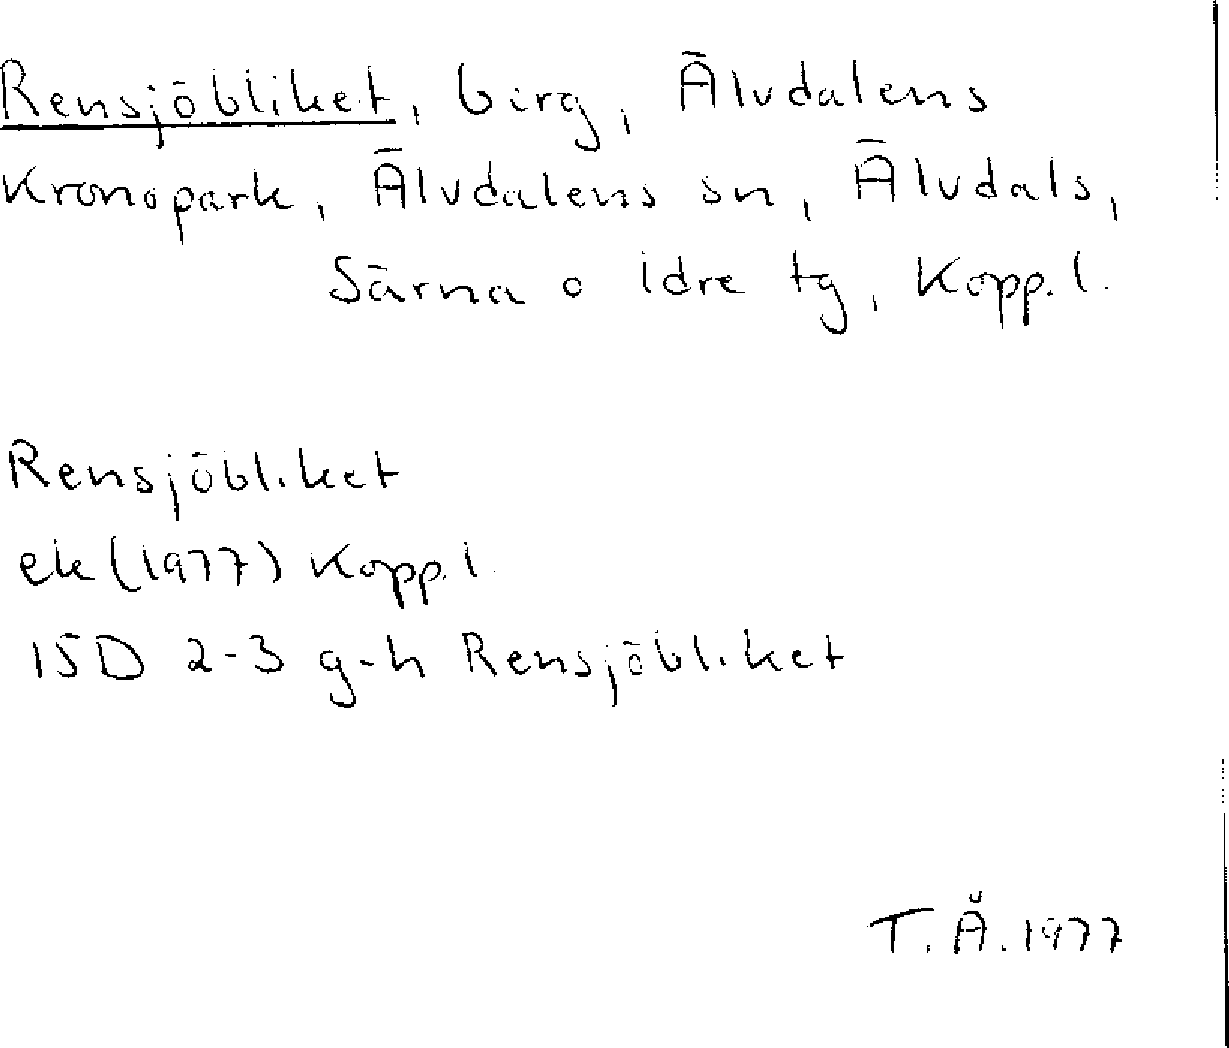 Rensjöbliket, berg, Älvdalens
Kronopark, Älvdalens sn, Älvdals,
Särna o Idre tg, Kopp.l.
Rensjöbliket
ek (1977) Kopp.l
15D 2-3 g-h Rensjöbliket
T.Å.1977